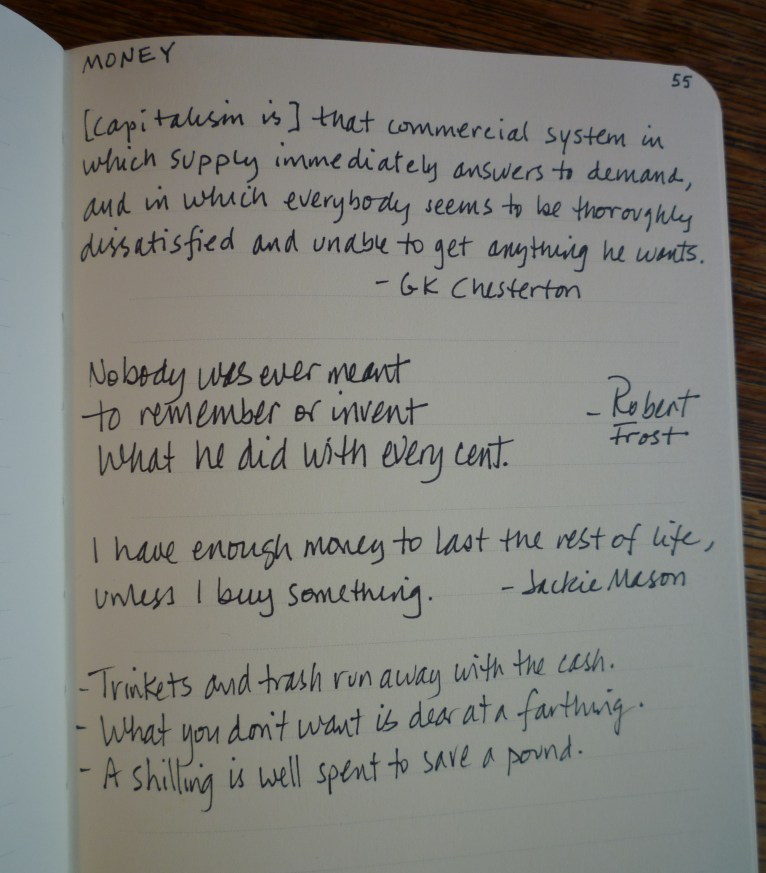 MONEY
55
[Capitalism is] that commercial system in
which supply immediately answers to demand,
and in which everybody seems to be thoroughly
dissatisfied and unable to get anything he wants.
- GK Chesterton
Nobody was ever meant
to remember or invent
What he did with every cent.
- Robert
Frost
I have enough money to last the rest of life,
unless I buy something. - Jackie Mason
- Trinkets and trash run away with the cash.
- What you don't want is dear at a farthing.
- A shilling is well spent to save a pound.